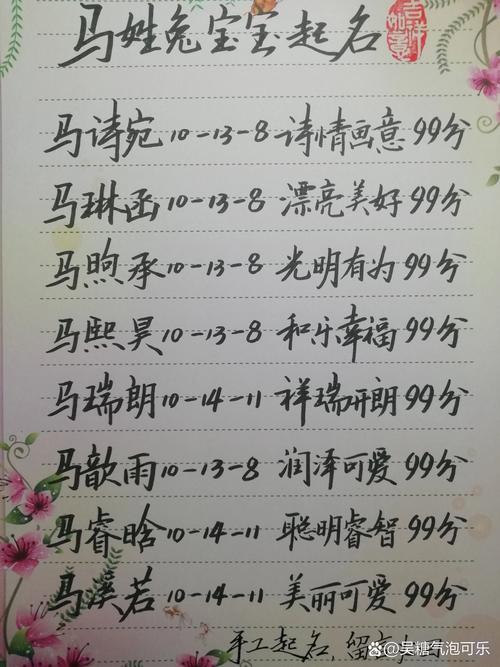 马姓兔宝宝起名
吉祥如意
马诗宛10-13-8 诗情画意99分
马琳函10-13-8 漂亮美好99分
马煦承10-13-8 光明有为99分
马熙昊10-13-8 和乐幸福99分
马瑞朗10-14-11 祥瑞明朗99分
马歆雨10-13-8 润泽可爱99分
马睿晗10-14-11 聪明睿智99分
马溪若10-14-11 美丽可爱99分
手工起名,留言
@吴糖气泡可乐